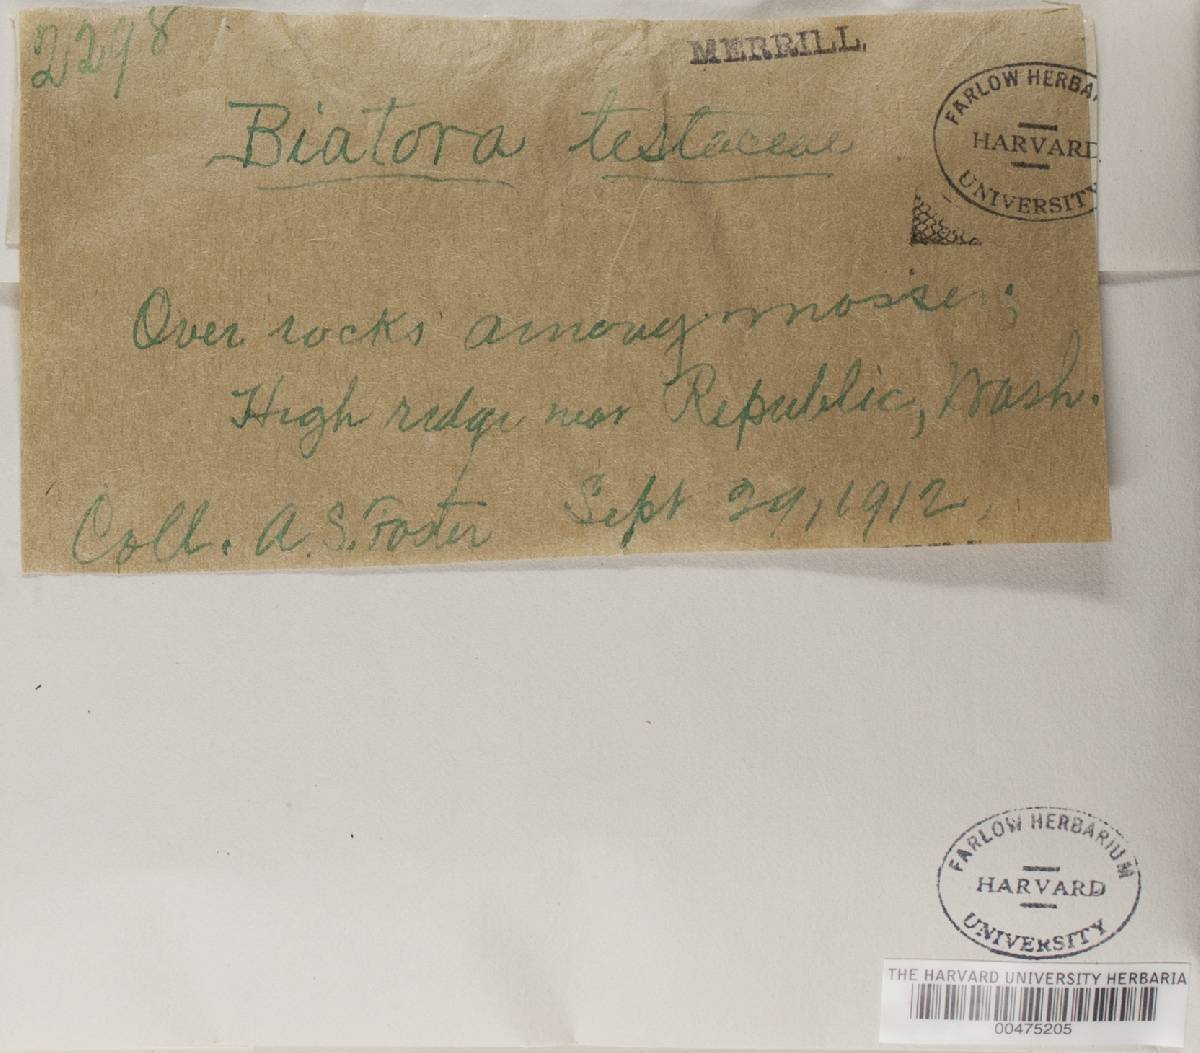 2298
MERRILL.
FARLOW HERBA
HARVARD
UNIVERSITY
Biatora testaceae
Over rocks among mosses;
High ridge near Republic, Wash.
Coll. A. S. Foster Sept 29, 1912,
FARLOW HERBARIUM
HARVARD
UNIVERSITY
THE HARVARD UNIVERSITY HERBARIA
00475205